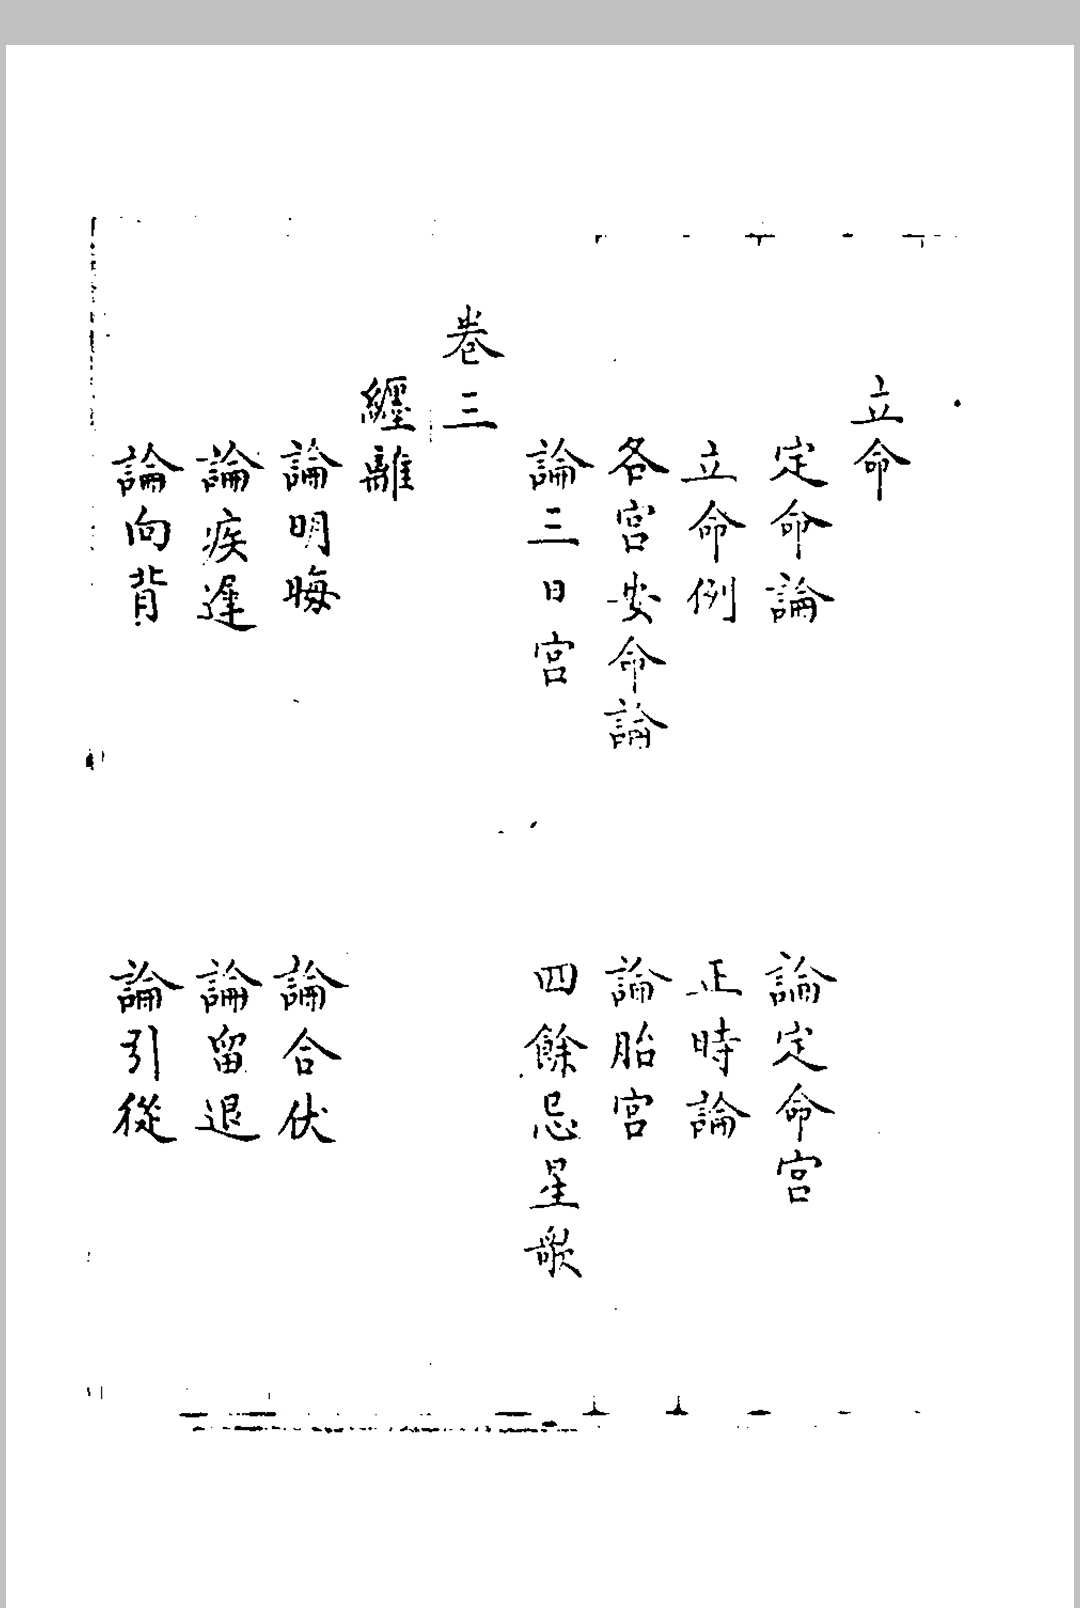 立命
定命論　論定命宮
立命例　正時論
各宮安命論　論胎宮
論三日宮　四餘忌星歌
卷三
纏離
論明晦　論合伏
論疾遲　論留退
論向背　論引從